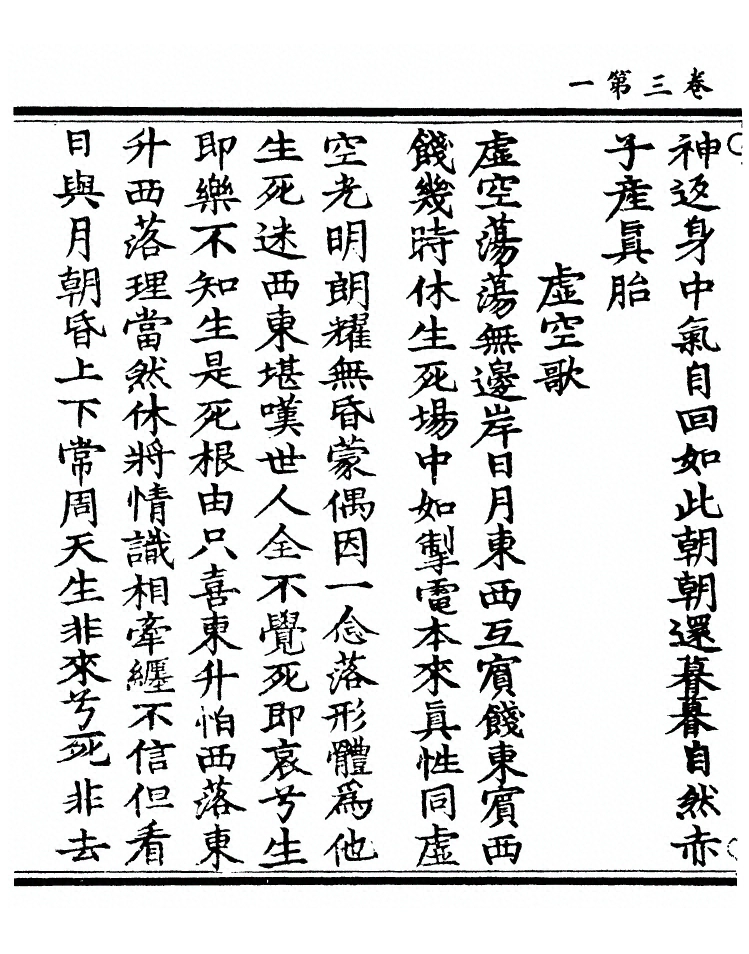 卷三第一
神返身中氣自回如此朝朝還暮暮自然赤
子產眞胎
虛空歌
虛空蕩蕩無邊岸日月東西互賓餞東賓西
餞幾時休生死場中如掣電本來眞性同虛
空光明朗耀無昏蒙偶因一念落形體爲他
生死迷西東堪嘆世人全不覺死即哀兮生
即樂不知生是死根由只喜東升怕西落東
升西落理當然休將情識相牽纏不信但看
日與月朝昏上下常周天生非來兮死非去